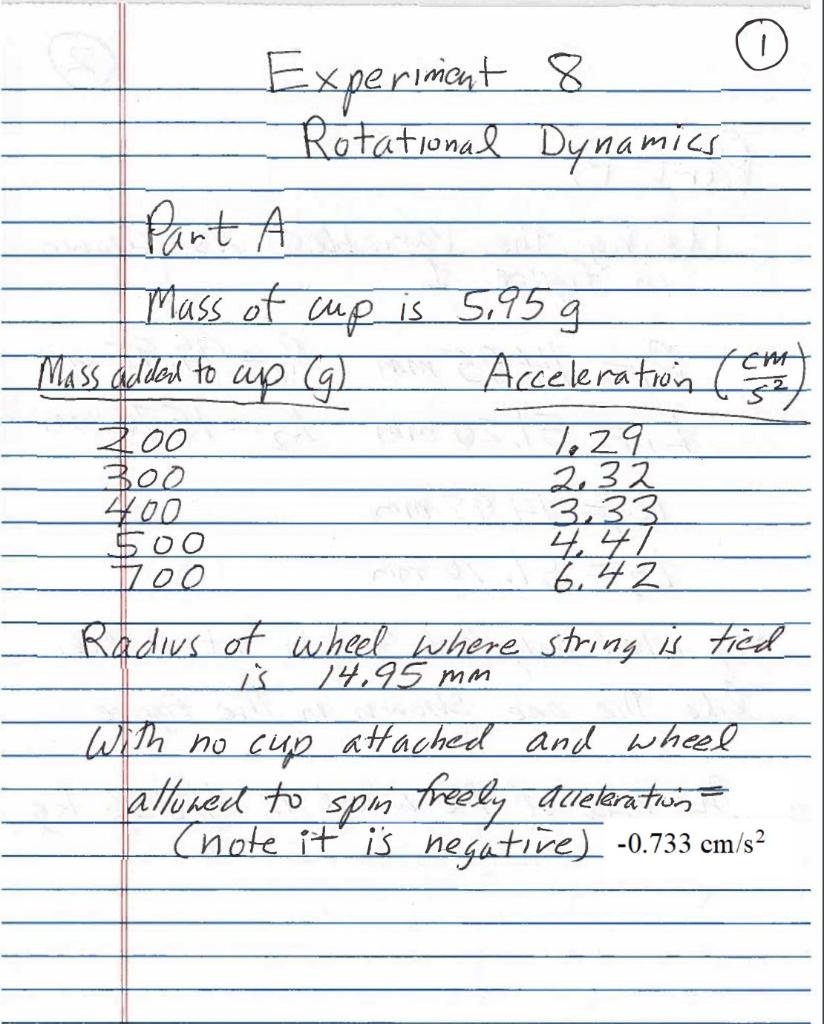 1
Experiment 8
Rotational Dynamics
Part A
Mass of cup is 5.95 g
Mass added to cup (g) Acceleration (cm/s²)
200 1.29
300 2.32
400 3.33
500 4.41
700 6.42
Radius of wheel where string is tied
is 14.95 mm
With no cup attached and wheel
allowed to spin freely acceleration =
(note it is negative) -0.733 cm/s²